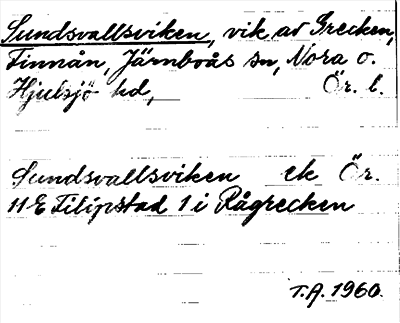 Sundsvallsviken, vik av Grecken,
Finnån, Järnboås sn, Nora o.
Hjulsjö hd, Ör. l.
Sundsvallsviken ek Ör.
11 E Filipstad 1 i Rågrecken
T.A. 1960.